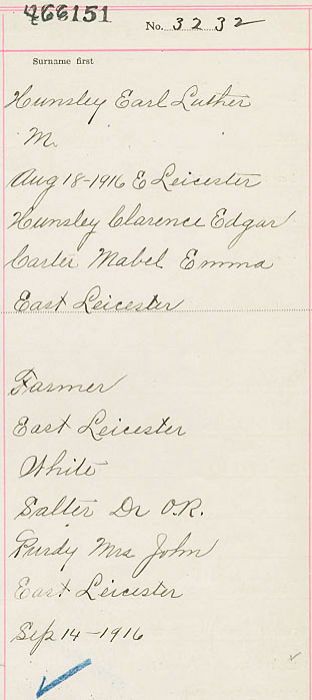 466151
No. 3232
Surname first
Hunsley Earl Luther
M.
Aug 18-1916 E Leicester
Hunsley Clarence Edgar
Carter Mabel Emma
East Leicester
Farmer
East Leicester
White
Salter Dr O.R.
Purdy Mrs John
East Leicester
Sep 14-1916